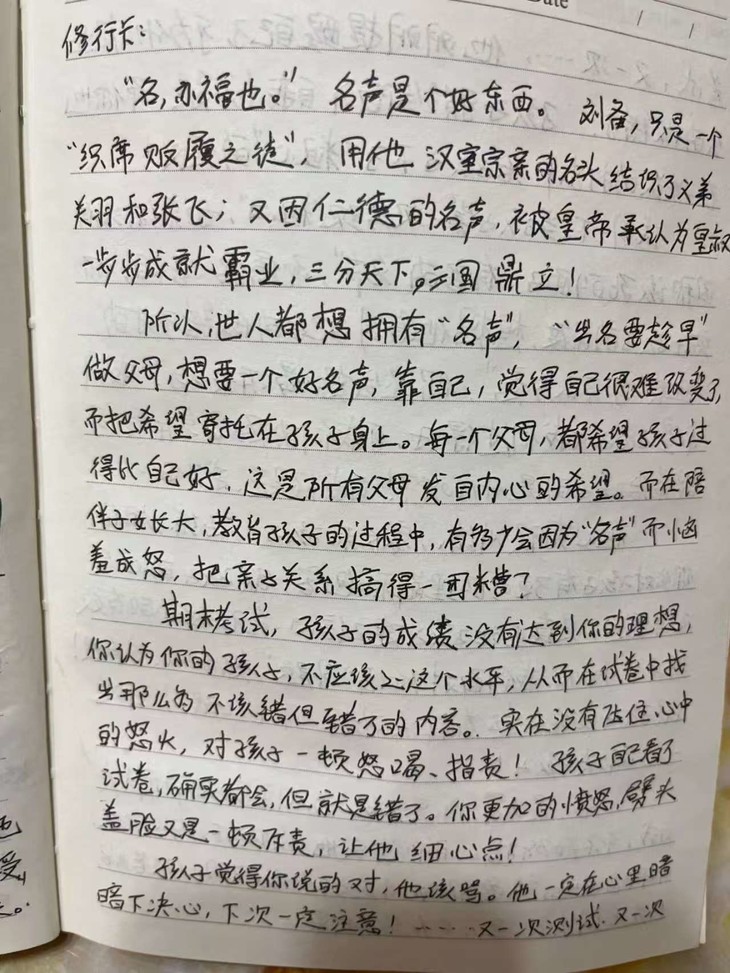 Date / /
修行长:
"名,亦福也。" 名声是个好东西。刘备,只是一个
"织席贩履之徒",用他汉室宗亲的名头结识了义弟
关羽和张飞;又因仁德的名声,被皇帝承认为皇叔
一步步成就霸业,三分天下。三国鼎立!
所以,世人都想拥有"名声","出名要趁早"
做父母,想要一个好名声,靠自己,觉得自己很难改变了,
而把希望寄托在孩子身上。每一个父母,都希望孩子过
得比自己好,这是所有父母发自内心的希望。而在陪
伴子女长大,教育孩子的过程中,有多少会因为"名声"而恼
羞成怒,把亲子关系搞得一团糟?
期末考试,孩子的成绩没有达到你的理想,
你认为你的孩子,不应该是这个水平,从而在试卷中找
出那么多不该错但错了的内容。实在没有压住心中
的怒火,对孩子一顿怒喝、指责!孩子自己看了
试卷,确实都会,但就是错了。你更加的愤怒,劈头
盖脸又是一顿斥责,让他细心点!
孩子觉得你说的对,他该骂。他一定在心里暗
暗下决心,下次一定注意!……又一次测试,又一次
受